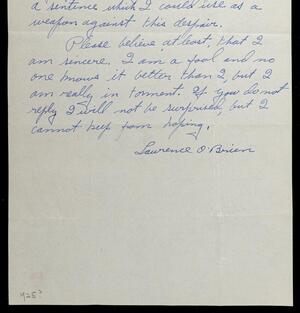 a sentence which I could use as a
weapon against this despair.
Please believe at least, that I
am sincere. I am a fool and no
one knows it better than I, but I
am really in torment. If you do not
reply I will not be surprised, but I
cannot keep from hoping.
Lawrence O'Brien
425?